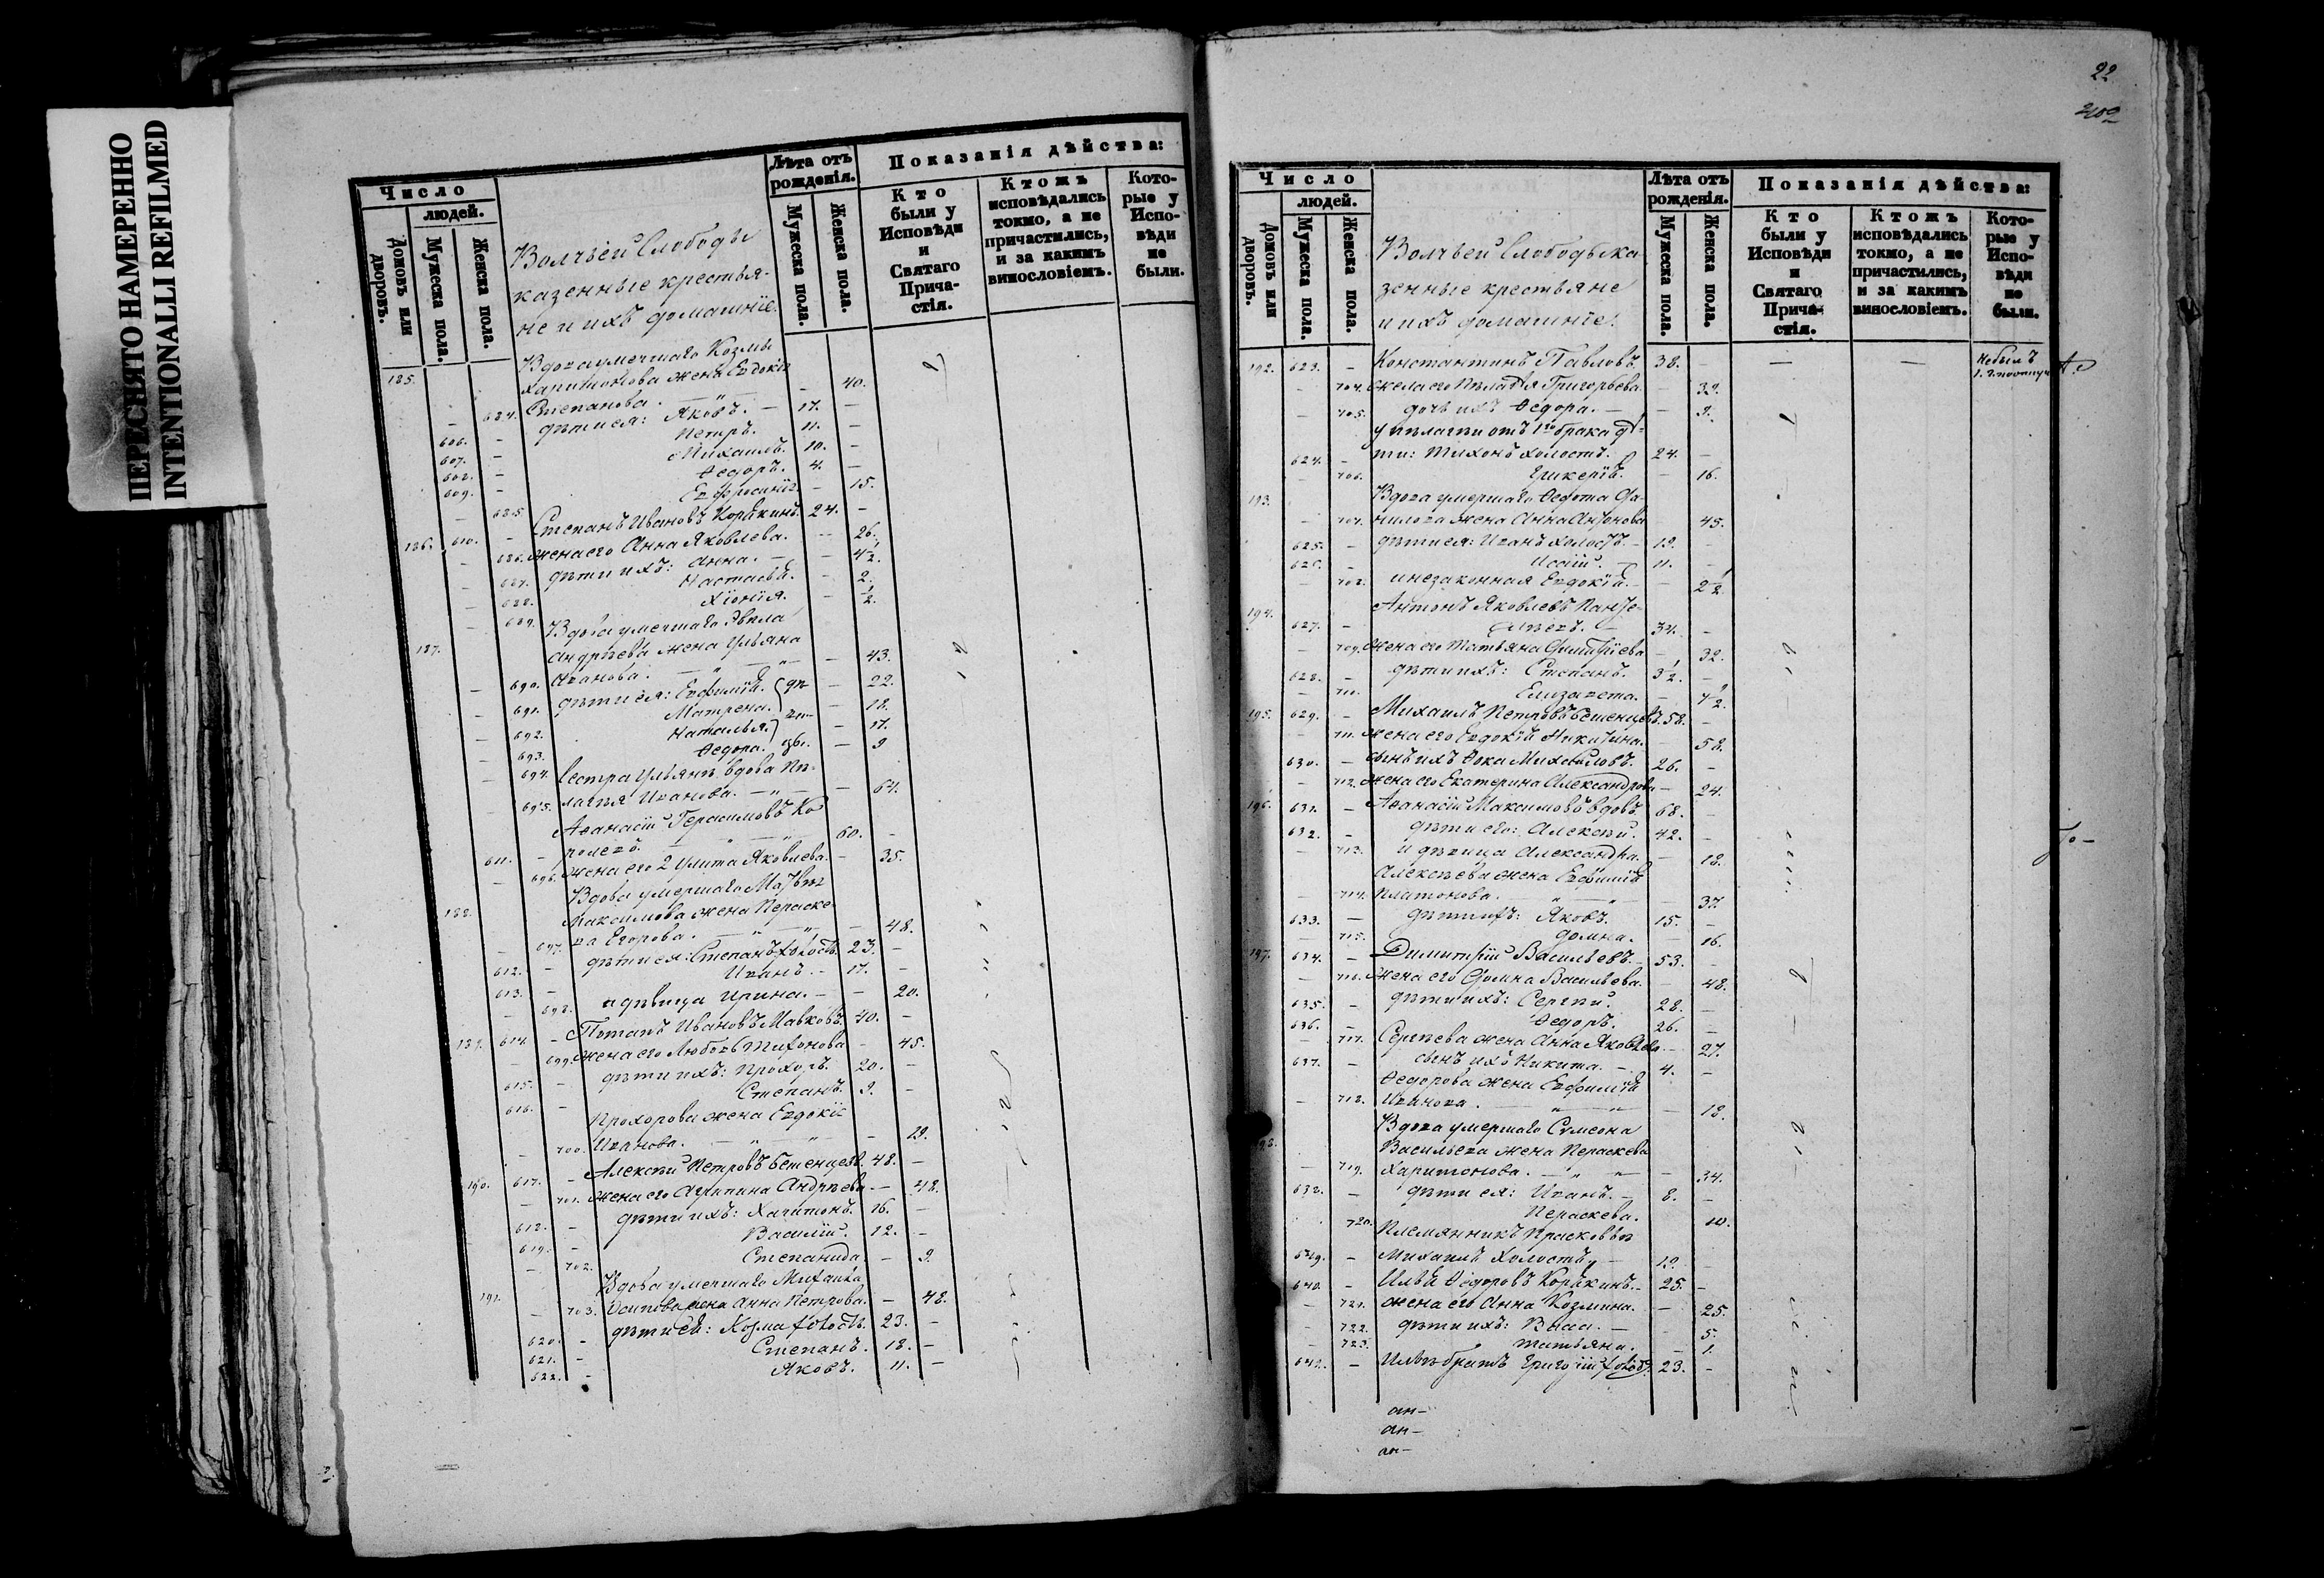 ПЕРЕСНЯТО НАМЕРЕННО
INTENTIONALLI REFILMED
Число
людей.
Домовъ или дворовъ.
Мужеска пола.
Женска пола.
Волчьей Слободы
казенные крестья-
не и ихъ домашніе.
Лѣта отъ рожденія.
Мужеска пола.
Женска пола.
Показанія дѣйства:
Кто были у Исповѣди и Святаго Прича-стія.
Ктожъ исповѣдались токмо, а не причастились, и за какимъ винословіемъ.
Кото-рые у Испо-вѣди не были.
185. Вдова умершаго Козмы
Харитонова жена Евдокія
684. Степанова. 40.
606. дѣти ея: Яковъ. 17.
607. Петръ. 11.
608. Михаилъ. 10.
609. Ѳедоръ. 4.
685. Евфросинія 15.
186. 610. Степанъ Ивановъ Корякинъ. 24.
686. жена его Анна Яковлева. 26.
687. дѣти ихъ: Анна. 4 1/2.
688. Настасья. 2.
689. Хіонія. 1/2.
187. Вдова умершаго
Андреева жена Ульяна
690. Иванова. 43.
691. дѣти ея: Евфимія. 22.
692. Матрена. 18.
693. Наталья. 17.
694. Ѳедора. 9
Сестра Ульяны вдова Пе-
695. лагѣя Иванова. 64.
Аѳанасій Герасимовъ Ко
611. ролевъ. 60.
696. жена его 2 Улита Яковлева. 35.
188. Вдова умершаго Матвѣя
Максимова жена Параске-
697. ва Егорова. 48.
612. дѣти ея: Степанъ холостъ. 23.
613. Иванъ. 17.
698. и дѣвица Ирина. 20.
189. 614. Потапъ Ивановъ Мавковъ. 40.
699. жена его Любовь Тихонова 45.
615. дѣти ихъ: Прохоръ. 20.
616. Степанъ. 9.
Прохорова жена Евдокія
700. Иванова. 19.
190. 617. Алексѣй Петровъ Бешенцевъ. 48.
701. жена его Агрипина Андреева 48.
618. дѣти ихъ: Харитонъ. 16.
619. Василій. 12.
702. Степанида. 9.
191. Вдова умершаго Михаила
703. Осипова жена Анна Петрова. 48.
620. дѣти ея: Козма холостъ. 23.
621. Степанъ. 18.
622. Яковъ. 11.
22
402
Число
людей.
Домовъ или дворовъ.
Мужеска пола.
Женска пола.
Волчьей Слободы ка-
зенные крестьяне
и ихъ домашніе.
Лѣта отъ рожденія.
Мужеска пола.
Женска пола.
Показанія дѣйства:
Кто были у Исповѣди и Святаго Прича-стія.
Ктожъ исповѣдались токмо, а не причастились, и за какимъ винословіемъ.
Кото-рые у Испо-вѣди не были.
192. 623. Константинъ Павловъ. 38. Не былъ
704. жена его Пелагѣя Григорьева. 32.
705. дочь ихъ Ѳедора. 9.
у Пелагѣи отъ 1го брака дѣ-
624. ти: Тихонъ холостъ. 24.
706. Гликерія. 16.
193. Вдова умершаго Ѳедота Да-
707. нилова жена Анна Антонова 45.
625. дѣти ея: Иванъ холостъ. 19.
626. 11.
708. и незаконная Евдокія. 2 1/2
194. Антонъ Яковлевъ
627. 34.
709. жена его Татьяна Димитріева 32.
628. дѣти ихъ: Степанъ. 3 1/2.
710. Елизавета. 1/2.
195. 629. Михаилъ Петровъ Бешенцевъ. 58.
711. жена его Евдокія Никитина. 58.
630. сынъ ихъ Ѳока Михайловъ. 26.
712. жена его Екатерина Александрова 24.
196. 631. Аѳанасій Максимовъ вдовъ. 68.
632. дѣти его: Алексѣй. 42.
713. и дѣвица Александра. 18.
Алексѣева жена Евфимія
714. Платонова. 37.
633. дѣти ихъ: Яковъ. 15.
715. Домна. 16.
197. 634. Димитрій Васильевъ. 53.
716. Жена его Домна Васильева. 48.
635. дѣти ихъ: Сергѣй. 28.
636. Ѳедоръ. 26.
717. Сергѣева жена Анна Яковлева 27.
637. сынъ ихъ Никита. 4.
Ѳедорова жена Евфимія
718. Иванова. 18.
198. Вдова умершаго Сѵмеона
Васильева жена Параскева
719. Харитонова. 34.
638. дѣти ея: Иванъ. 8.
720. Параскева. 10.
Племянникъ Прасковьи
639. Михаилъ Холостъ 19.
640. Илья Ѳедоровъ Корякинъ. 25.
721. жена его Анна Козмина. 25.
722. дѣти ихъ: Васса. 5.
723. Татьяна. 1.
641. Ильи братъ Григорій холостъ. 23.